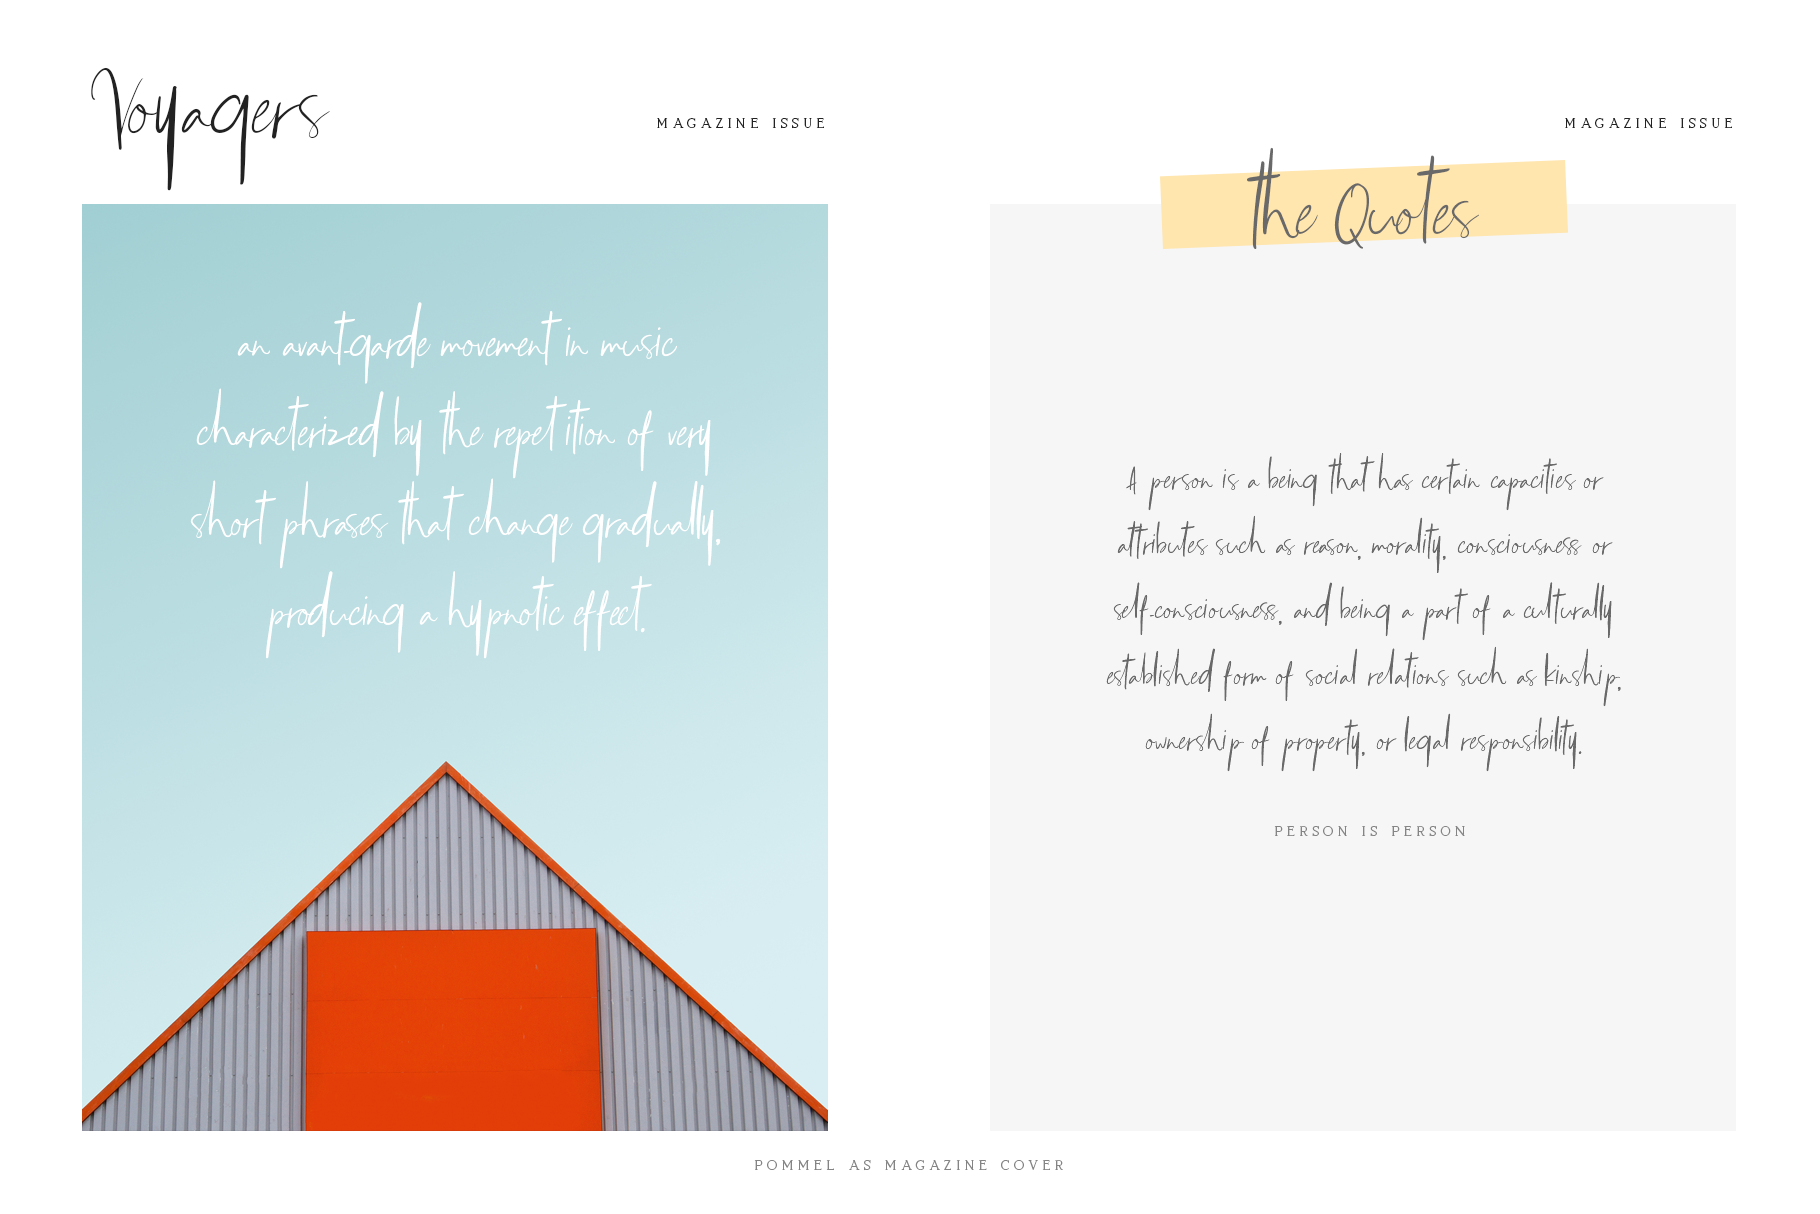 Voyagers
MAGAZINE ISSUE
an avant-garde movement in music
characterized by the repetition of very
short phrases that change gradually,
producing a hypnotic effect.
MAGAZINE ISSUE
the Quotes
A person is a being that has certain capacities or
attributes such as reason, morality, consciousness or
self-consciousness, and being a part of a culturally
established form of social relations such as kinship,
ownership of property, or legal responsibility.
PERSON IS PERSON
POMMEL AS MAGAZINE COVER